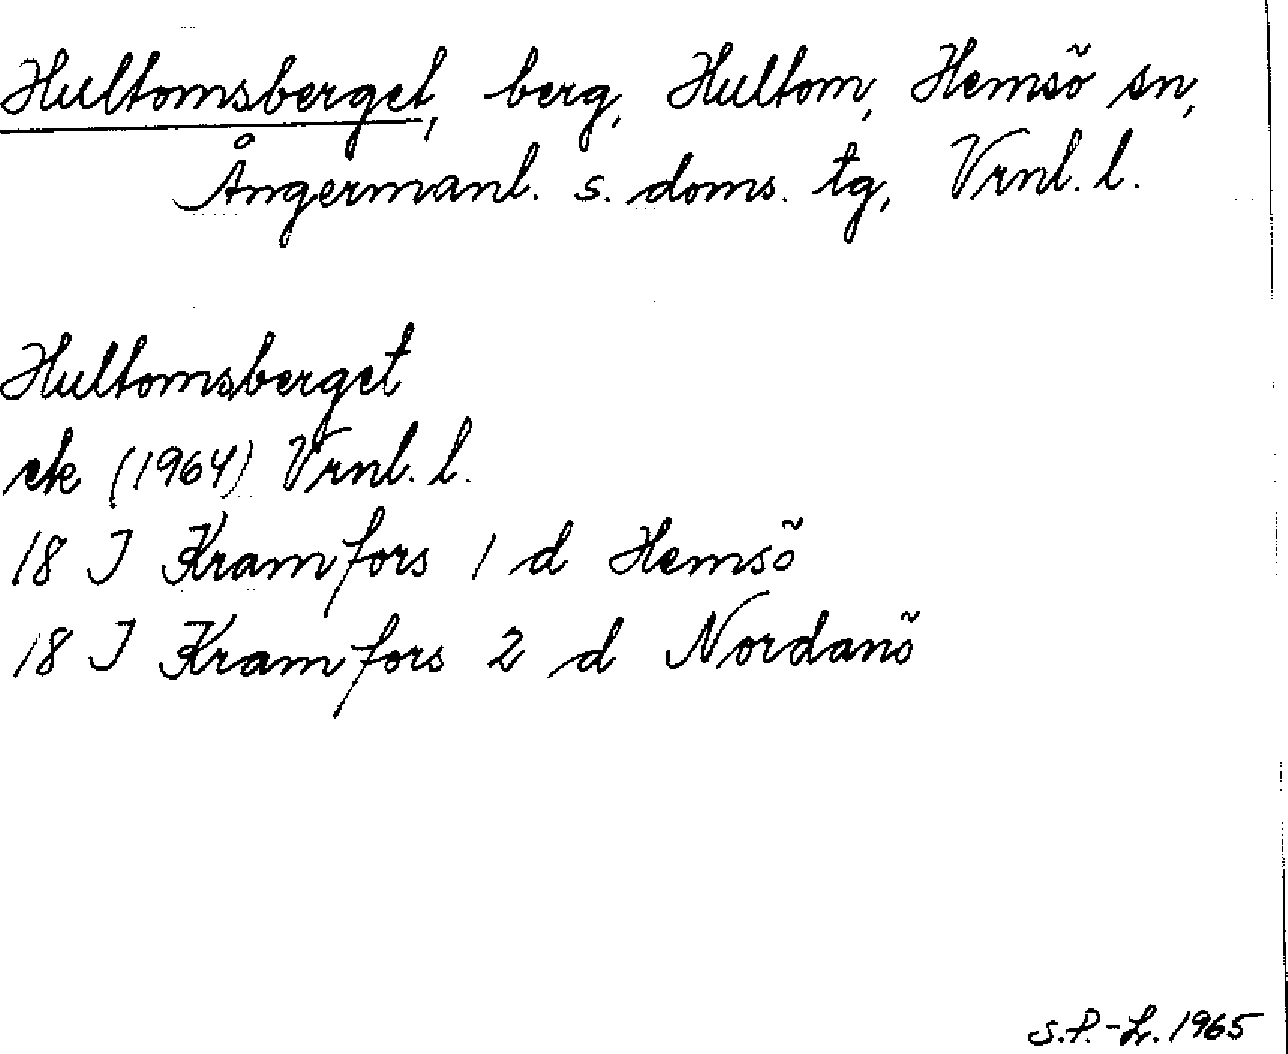 Hultomsberget, berg, Hultom, Hemsö sn,
Ångermanl. s. doms. tg, Vrnl. l.
Hultomsberget
ek (1964) Vrnl. l.
18 I Kramfors 1 d Hemsö
18 I Kramfors 2 d Nordanö
S.P.-L. 1965